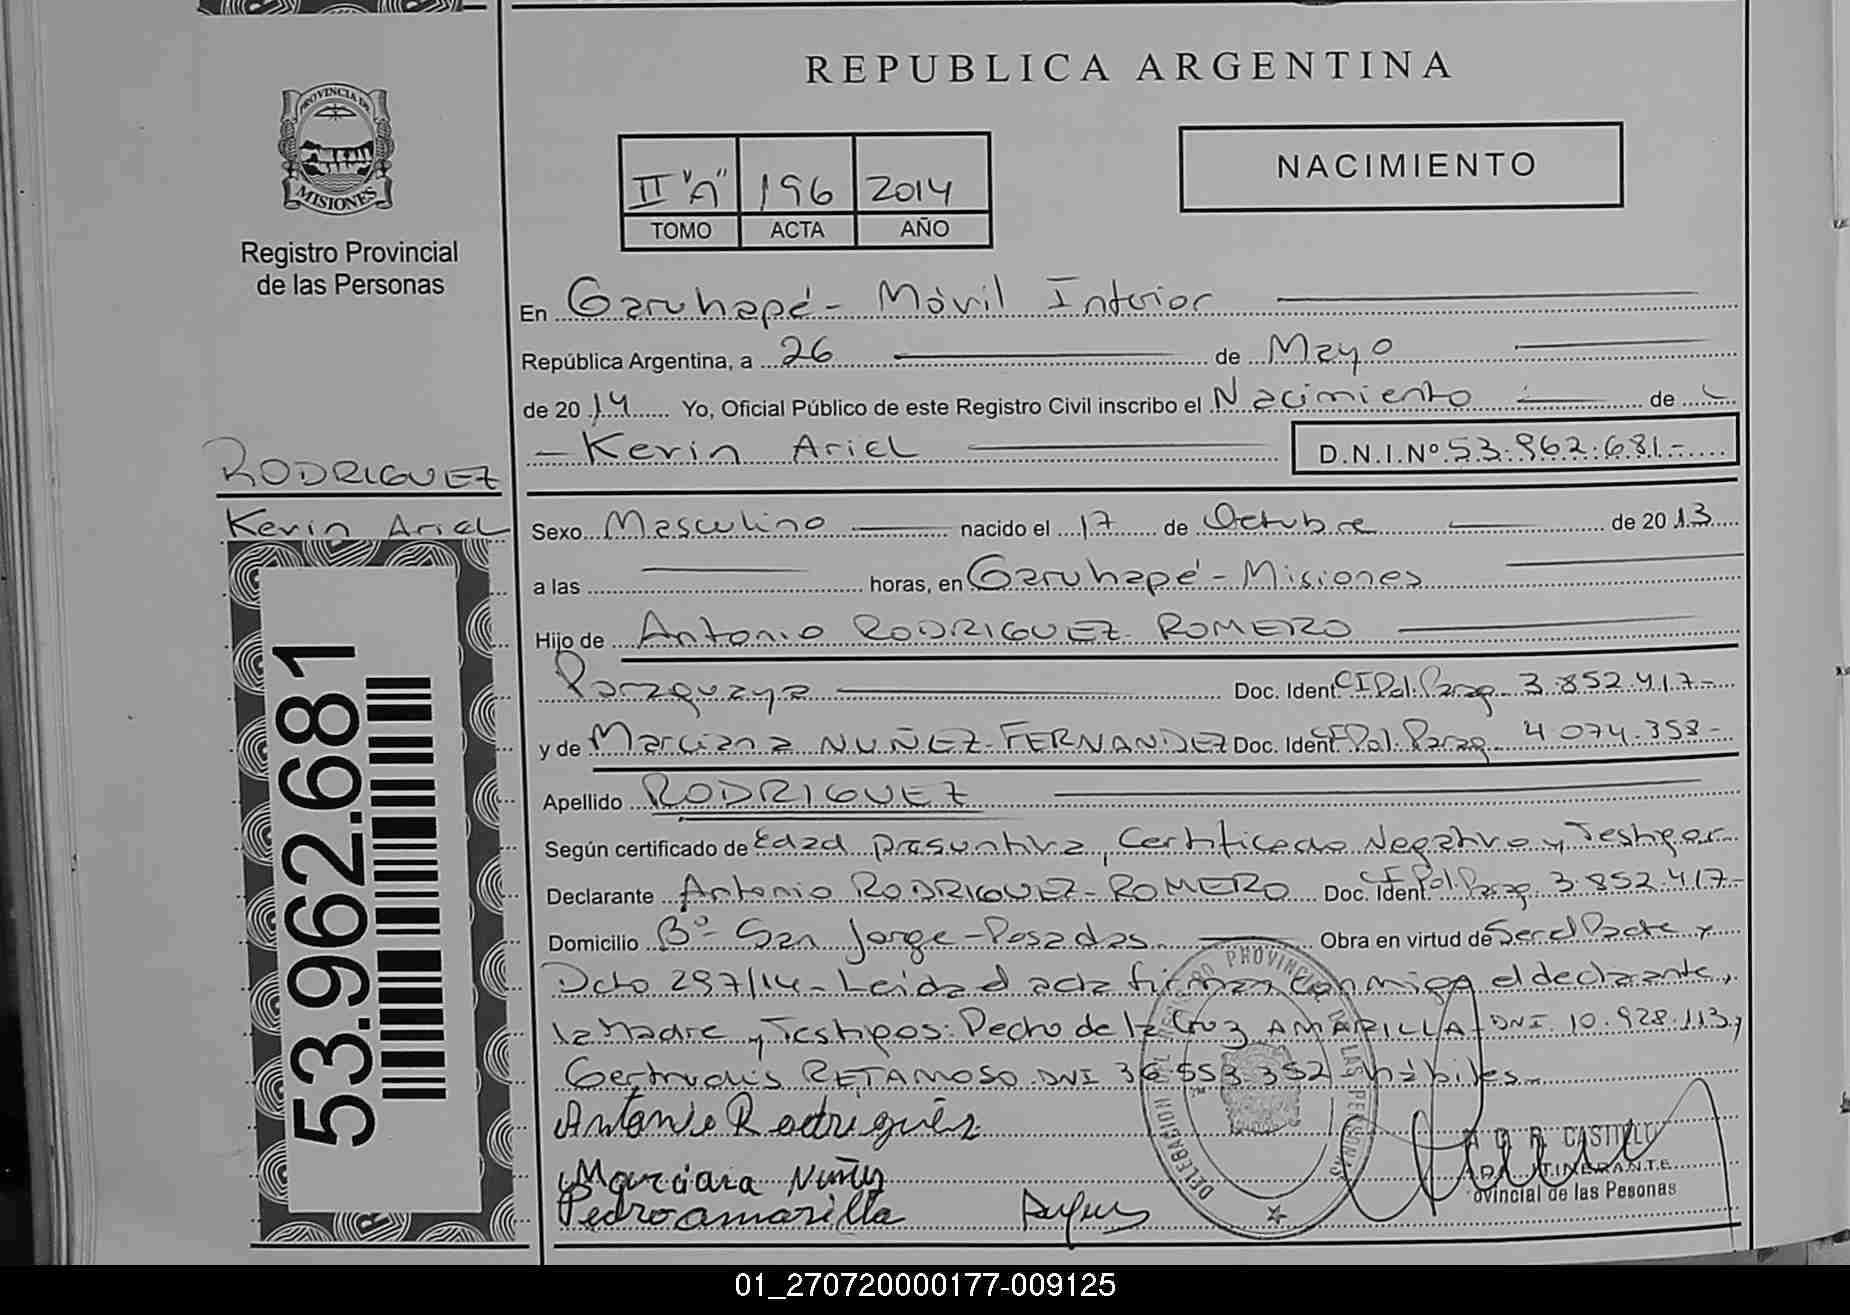 REPUBLICA ARGENTINA
PROVINCIA DE
MISIONES
Registro Provincial
de las Personas
II "A" 196 2014
TOMO ACTA AÑO
NACIMIENTO
En Garuhapé - Móvil Interior
República Argentina, a 26 de Mayo
de 2014 Yo, Oficial Público de este Registro Civil inscribo el Nacimiento de
- Kevin Ariel D.N.I.Nº 53.962.681.-
RODRIGUEZ
Kevin Ariel
Sexo Masculino nacido el 17 de Octubre de 2013
a las horas, en Garuhapé - Misiones
Hijo de Antonio RODRIGUEZ - ROMERO
Paraguaya Doc. Ident. CI Pol. Parag. 3.852.417-
y de Marciana NUÑEZ - FERNANDEZ Doc. Ident. CI Pol. Parag. 4.074.358-
Apellido RODRIGUEZ
Según certificado de Edad presuntiva, Certificado Negativo y Testigos
Declarante Antonio RODRIGUEZ - ROMERO Doc. Ident. CI Pol. Parag. 3.852.417-
Domicilio Bº San Jorge - Posadas Obra en virtud de Ser el Padre y
Dcto 297/14 - Leida el acta firman conmigo el declarante,
la Madre y Testigos: Pedro de la Cruz AMARILLA - DNI 10.928.113 y
Gertrudis RETAMOSO DNI 36.553.352 hábiles.
Antonio Rodriguez
Marciana Nuñez
Pedro amarilla
CASTILLO
ITINERANTE
ovincial de las Pesonas
53.962.681
01_270720000177-009125